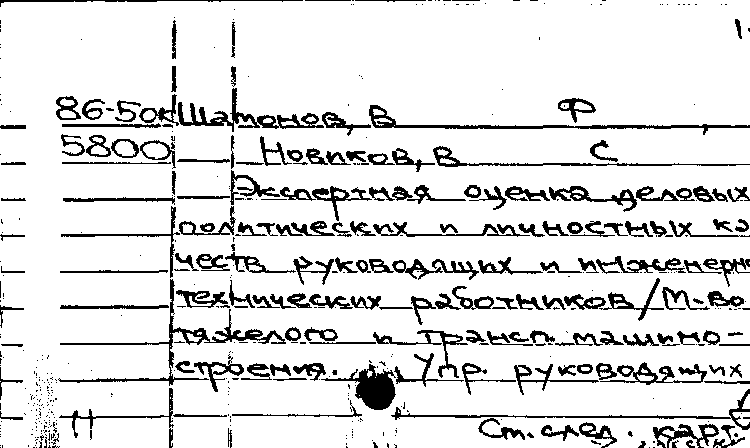 86-50к Шатонов, В Ф
5800 Новиков, В С
Экспертная оценка деловых
политических и личностных ка
честв руководящих и инженерно
технических работников / М-во
тяжелого и трансп. машино-
строения. Упр. руководящих
Ст. след. карт.